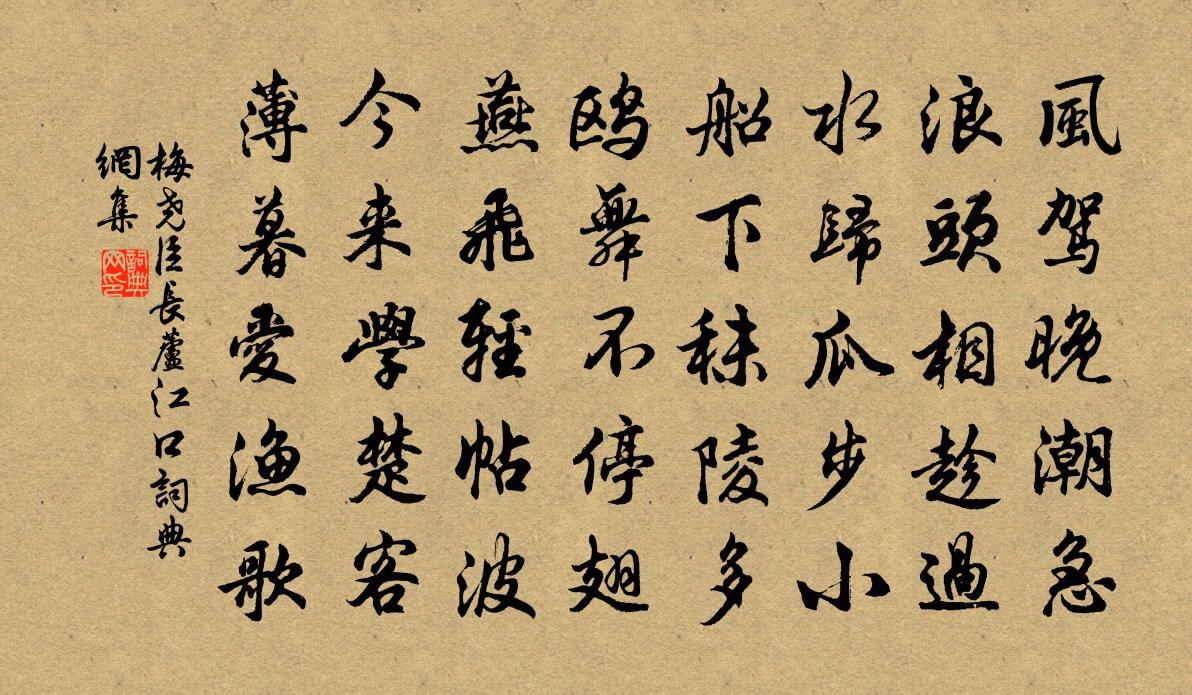 風駕晚潮急
浪頭相趁過
水歸瓜步小
船下秣陵多
鸥舞不停翅
燕飛輕帖波
今来學楚客
薄暮愛漁歌
梅尧臣長蘆江口詞典
網集
詞典
网印